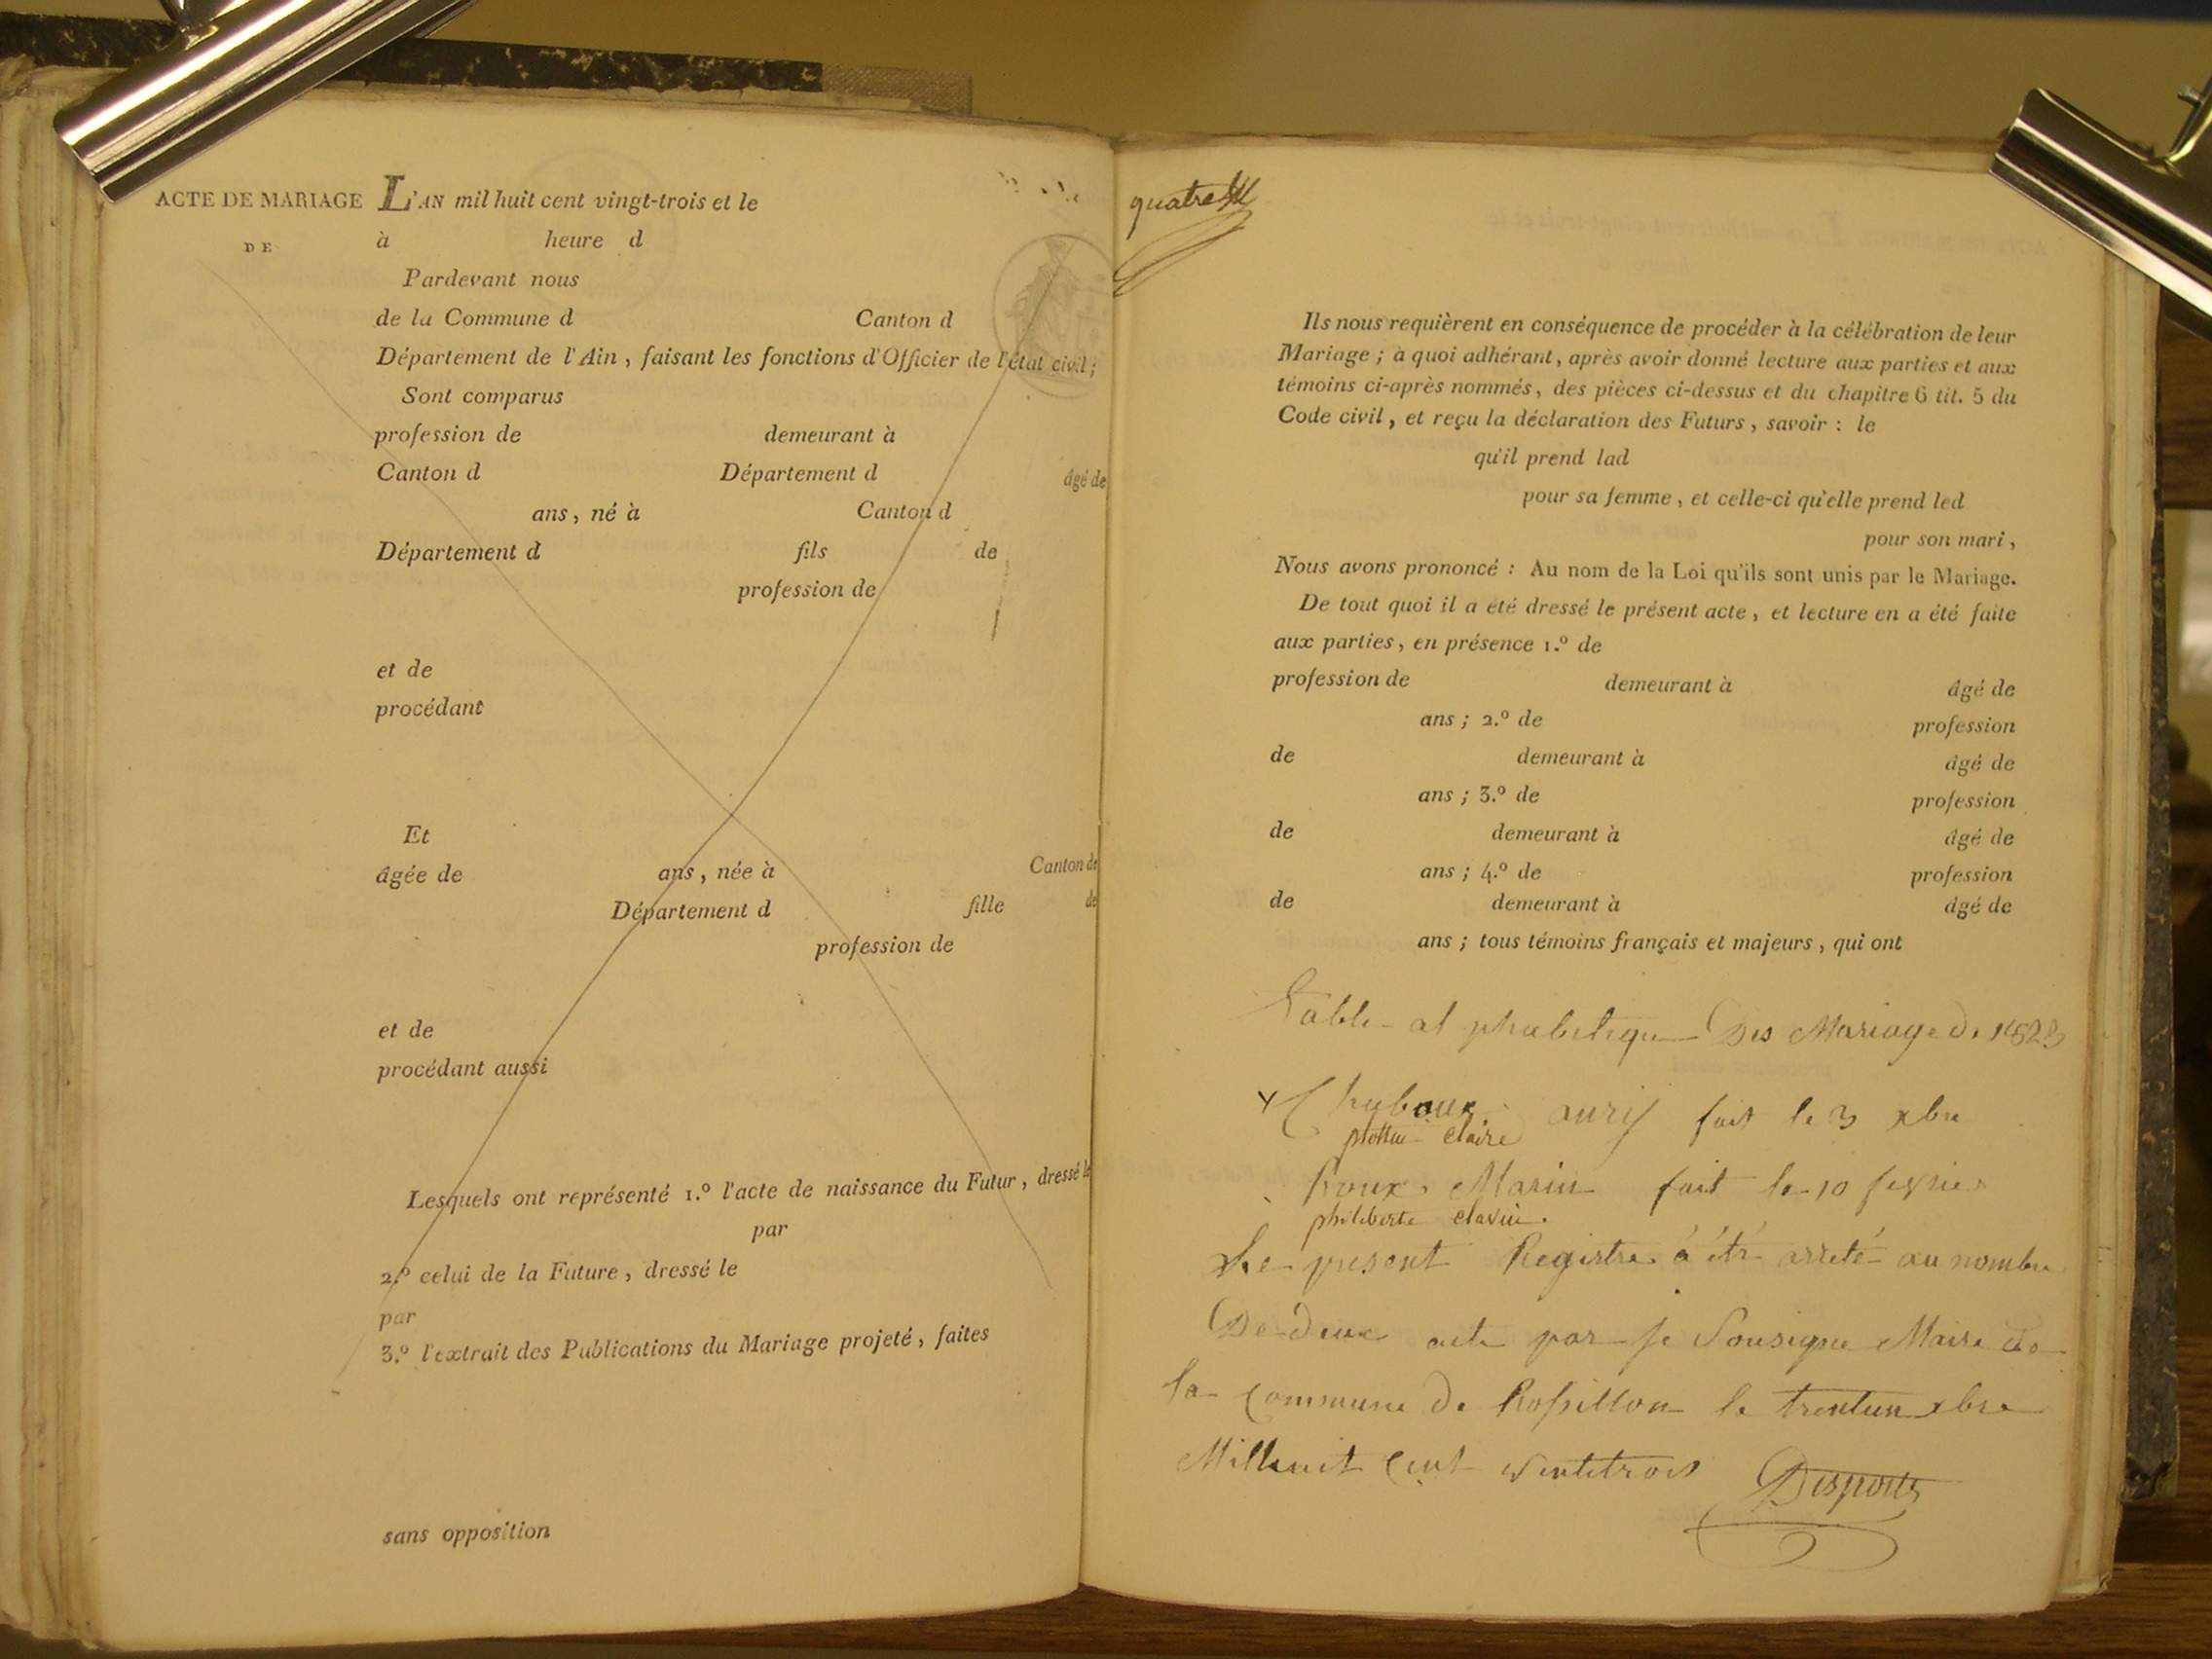 ACTE DE MARIAGE
DE
L'AN mil huit cent vingt-trois et le
à heure d
Pardevant nous
de la Commune d Canton d
Département de l'Ain, faisant les fonctions d'Officier de l'état civil;
Sont comparus
profession de demeurant à
Canton d Département d âgé de
ans, né à Canton d
Département d fils de
profession de
et de
procédant
Et
âgée de ans, née à Canton de
Département d fille de
profession de
et de
procédant aussi
Lesquels ont représenté 1.º l'acte de naissance du Futur, dressé le
par
2.º celui de la Future, dressé le
par
3.º l'extrait des Publications du Mariage projeté, faites
sans opposition
quatre
Ils nous requièrent en conséquence de procéder à la célébration de leur
Mariage; à quoi adhérant, après avoir donné lecture aux parties et aux
témoins ci-après nommés, des pièces ci-dessus et du chapitre 6 tit. 5 du
Code civil, et reçu la déclaration des Futurs, savoir: le
qu'il prend lad
pour sa femme, et celle-ci qu'elle prend led
pour son mari,
Nous avons prononcé: Au nom de la Loi qu'ils sont unis par le Mariage.
De tout quoi il a été dressé le présent acte, et lecture en a été faite
aux parties, en présence 1.º de
profession de demeurant à âgé de
ans; 2.º de profession
de demeurant à âgé de
ans; 3.º de profession
de demeurant à âgé de
ans; 4.º de profession
de demeurant à âgé de
ans; tous témoins français et majeurs, qui ont
Table alphabetique Des Mariage de 1823
fait le 3 xbre
claire
Roux Marin fait le 10 fevrier
philiberte
Le present Registre à été arreté au nombre
De deux acte par je Sousigne Maire de
la Commune de Rossillon le trentun xbre
Millhuit Cent vintetrois Desports